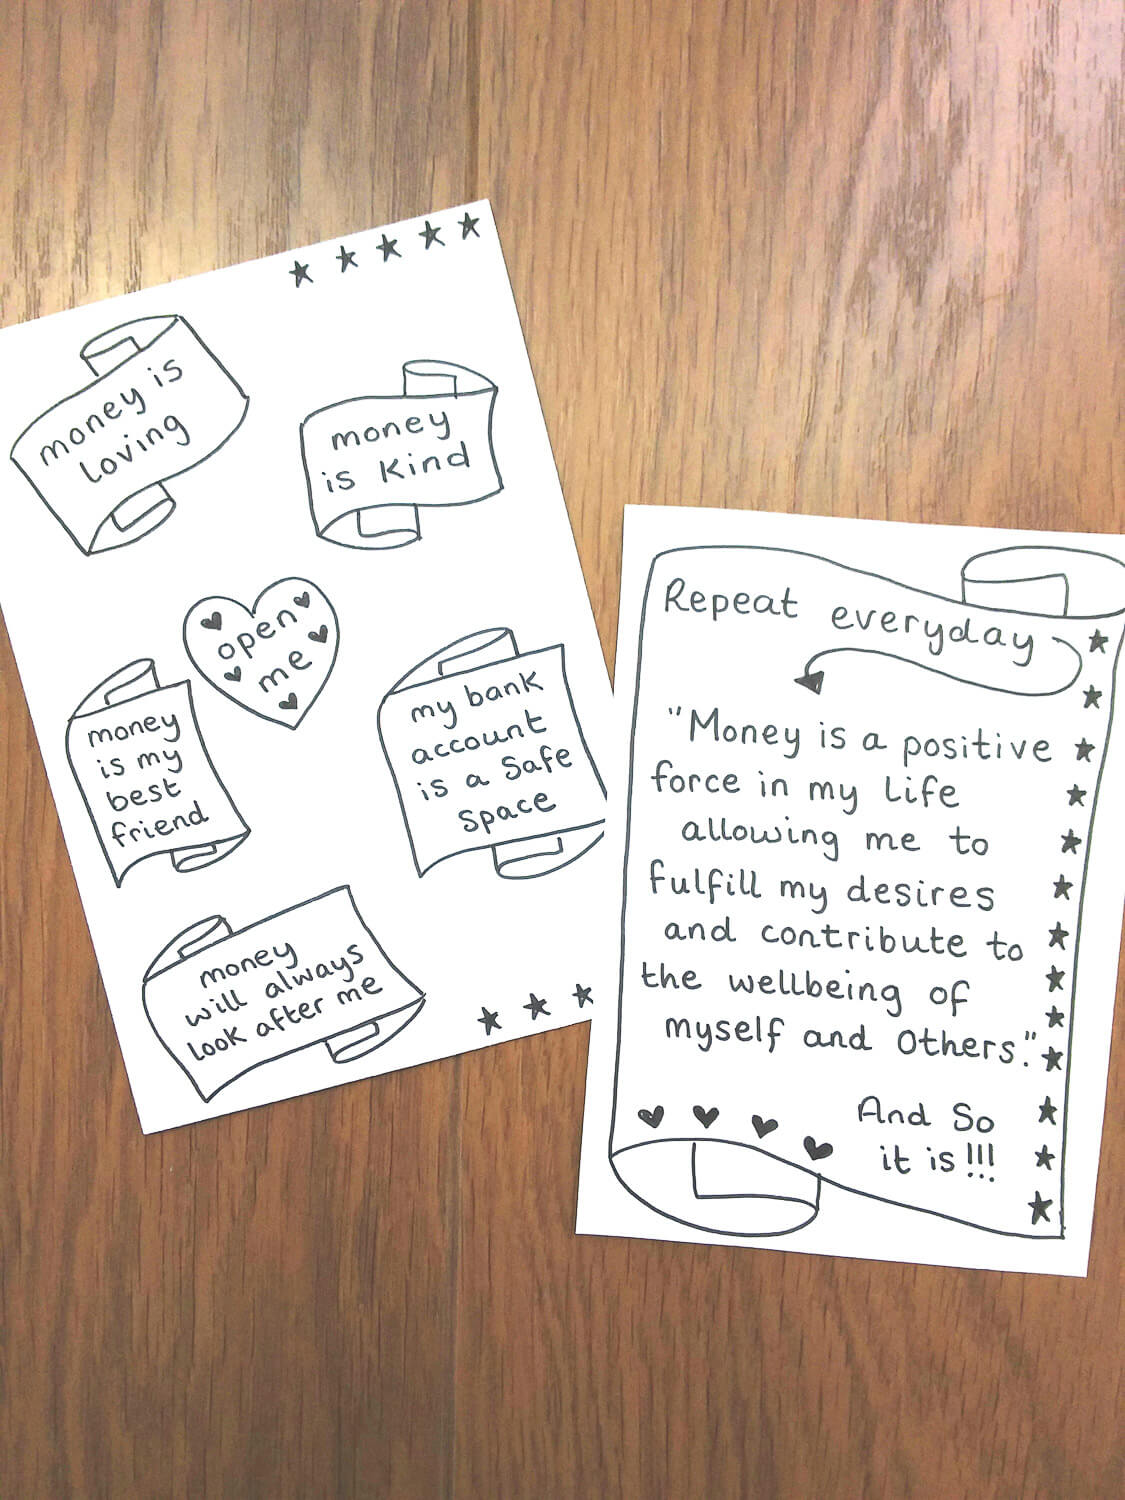 money is
loving
money
is kind
open
me
money
is my
best
friend
my bank
account
is a Safe
Space
money
will always
look after me
Repeat everyday
"Money is a positive
force in my life
allowing me to
fulfill my desires
and contribute to
the wellbeing of
myself and Others."
And So
it is!!!